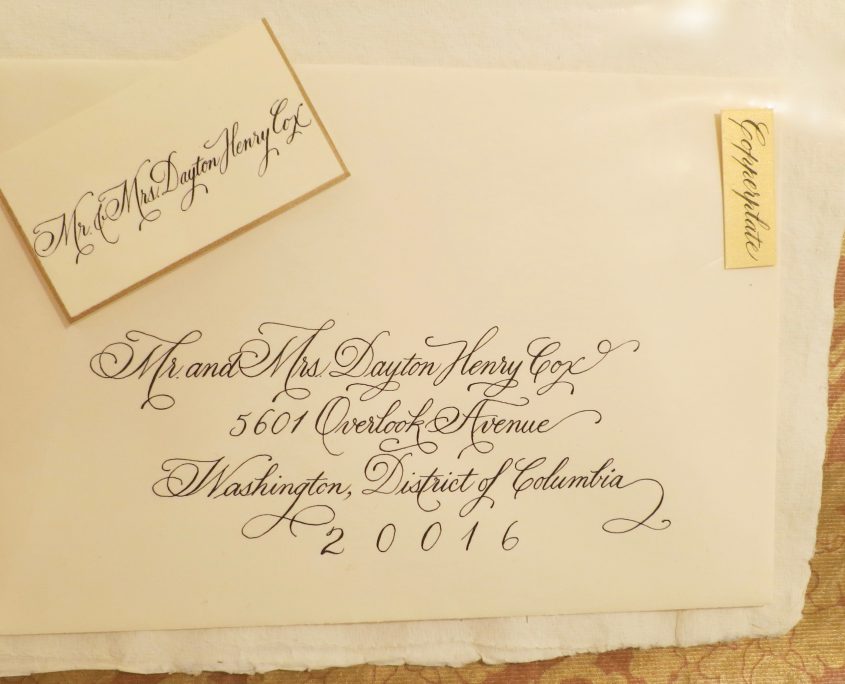 Mr. & Mrs. Dayton Henry Cox
Copperplate
Mr. and Mrs. Dayton Henry Cox
5601 Overlook Avenue
Washington, District of Columbia
20016